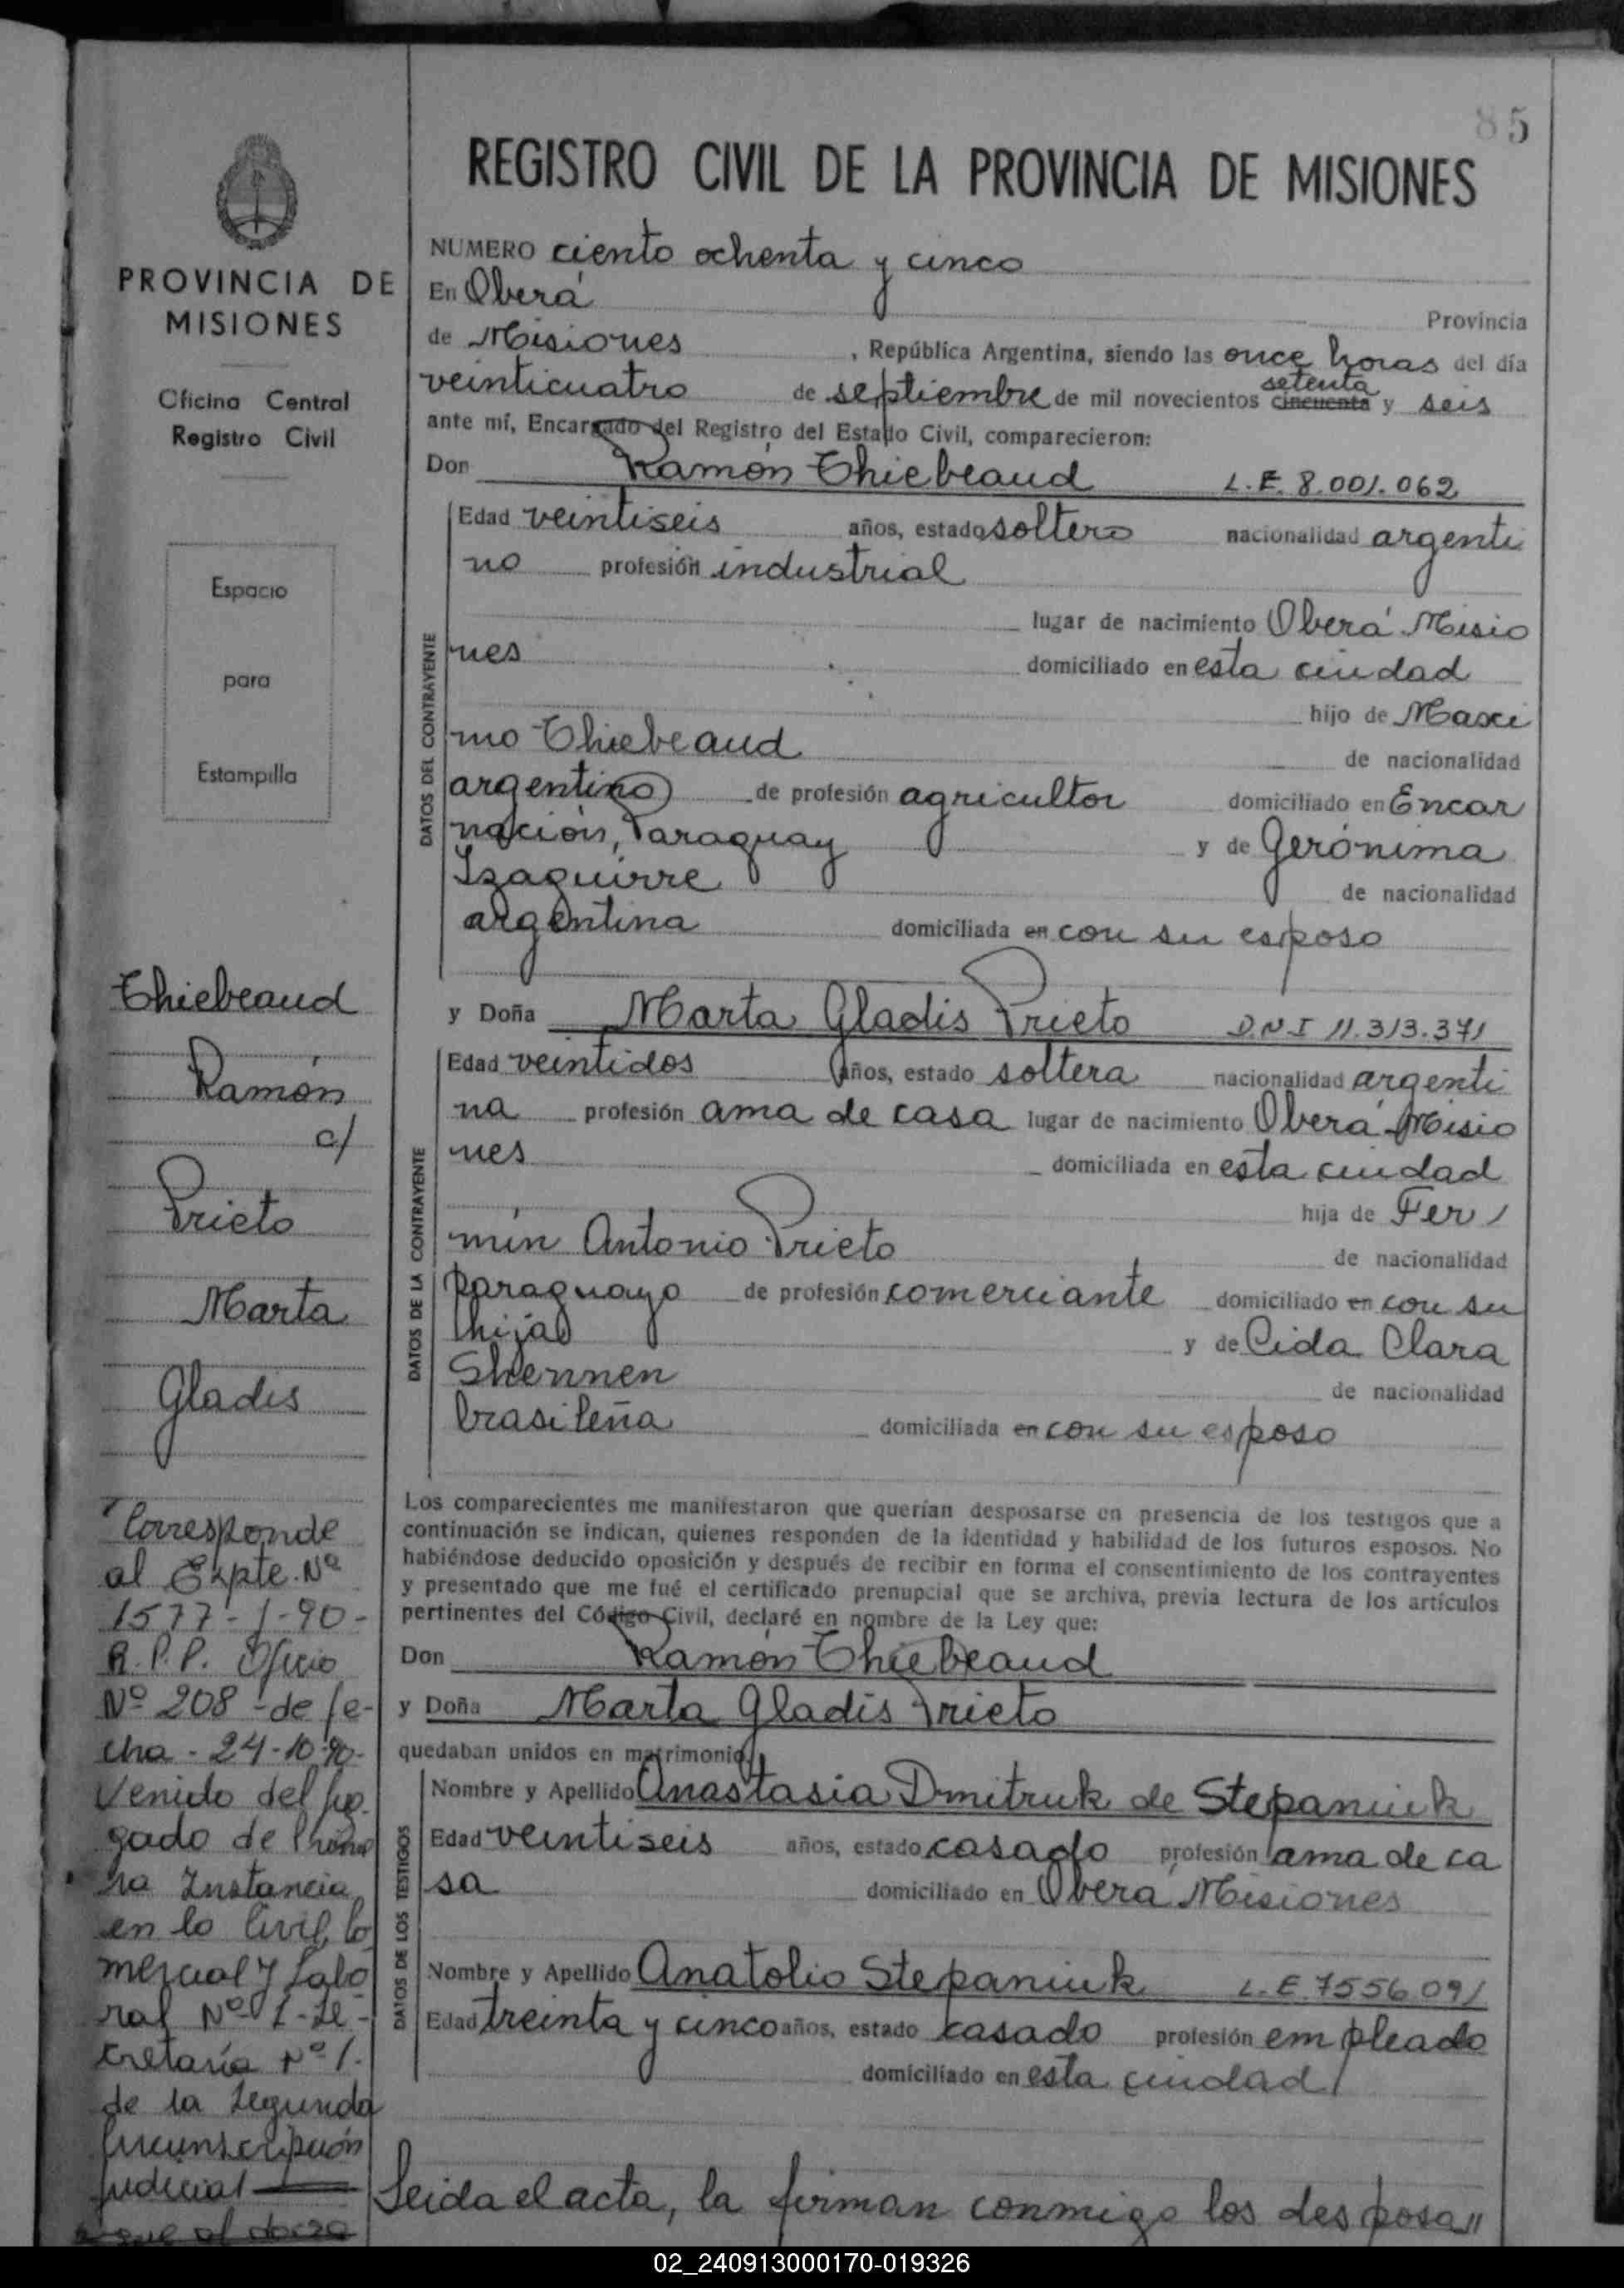 85
REGISTRO CIVIL DE LA PROVINCIA DE MISIONES
PROVINCIA DE
MISIONES
Oficina Central
Registro Civil
Espacio
para
Estampilla
Thiebeaud
Ramón
c/
Prieto
Marta
Gladis
Corresponde
al Expte. Nº
1577-1-90-
R.P.P. Oficio
Nº 208 - de fe-
cha - 24-10-90-
Venido del Juz-
gado de Prime
ra Instancia
en lo Civil, Co
mercial y Labo
ral Nº 1 - Se-
cretaría Nº 1.
de la Segunda
Circunscripción
Judicial
NUMERO ciento ochenta y cinco
En Oberá Provincia
de Misiones , República Argentina, siendo las once horas del día
veinticuatro de septiembre de mil novecientos cincuenta setenta y seis
ante mí, Encargado del Registro del Estado Civil, comparecieron:
Don Ramón Thiebeaud L.E. 8.001.062
DATOS DEL CONTRAYENTE
Edad veintiseis años, estado soltero nacionalidad argenti
no profesión industrial
lugar de nacimiento Oberá Misio
nes domiciliado en esta ciudad
hijo de Maxi
mo Thiebeaud de nacionalidad
argentino de profesión agricultor domiciliado en Encar
nación, Paraguay y de Gerónima
Izaguirre de nacionalidad
argentina domiciliada en con su esposo
y Doña Marta Gladis Prieto D.N.I 11.313.371
DATOS DE LA CONTRAYENTE
Edad veintidos años, estado soltera nacionalidad argenti
na profesión ama de casa lugar de nacimiento Oberá Misio
nes domiciliada en esta ciudad
hija de Fer
mín Antonio Prieto de nacionalidad
paraguayo de profesión comerciante domiciliado en con su
hija y de Cida Clara
Shennen de nacionalidad
brasileña domiciliada en con su esposo
Los comparecientes me manifestaron que querían desposarse en presencia de los testigos que a
continuación se indican, quienes responden de la identidad y habilidad de los futuros esposos. No
habiéndose deducido oposición y después de recibir en forma el consentimiento de los contrayentes
y presentado que me fué el certificado prenupcial que se archiva, previa lectura de los artículos
pertinentes del Código Civil, declaré en nombre de la Ley que:
Don Ramón Thiebeaud
y Doña Marta Gladis Prieto
quedaban unidos en matrimonio
DATOS DE LOS TESTIGOS
Nombre y Apellido Anastasia Dmitruk de Stepaniuk
Edad veintiseis años, estado casado profesión ama de ca
sa domiciliado en Oberá Misiones
Nombre y Apellido Anatolio Stepaniuk L.E. 7556.091
Edad treinta y cinco años, estado casado profesión empleado
domiciliado en esta ciudad
Leida el acta, la firman conmigo los desposa"
02_240913000170-019326